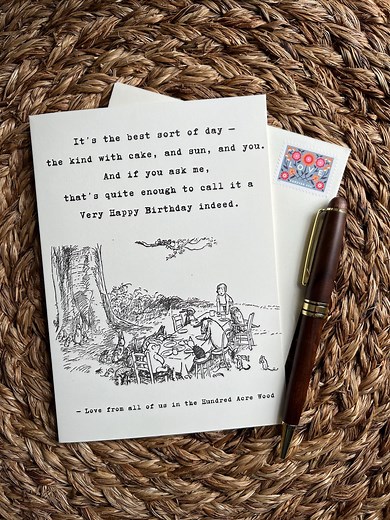 It's the best sort of day —
the kind with cake, and sun, and you.
And if you ask me,
that's quite enough to call it a
Very Happy Birthday indeed.
— Love from all of us in the Hundred Acre Wood